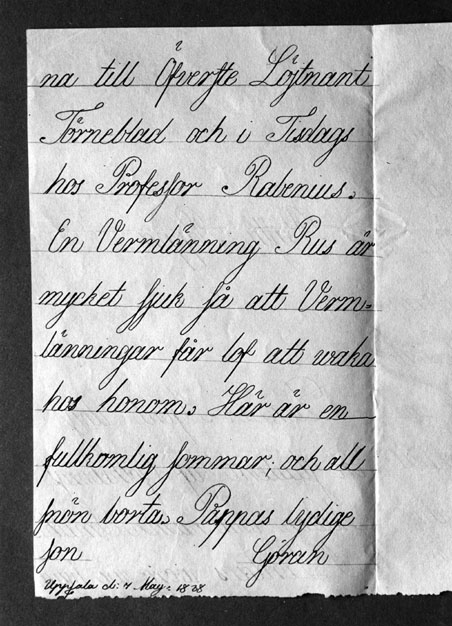 na till Öfverste Löjtnant
Törneblad och i Tisdags
hos Professor Rabenius.
En Vermlänning Rus är
mycket sjuk så att Verm=
länningar får lof att waka
hos honom. Här är en
fullkomlig sommar; och all
snön borta. Pappas lydige
son Göran
Uppsala d: 7 May: 1828